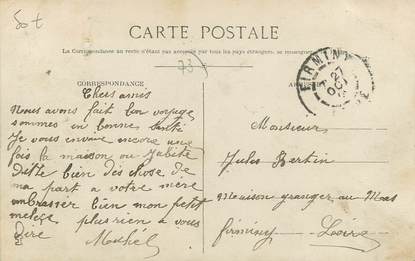 50t
CARTE POSTALE
La Correspondance au recto n'étant pas acceptée par tous les pays étrangers, se renseigner
73
FIRMINY
27
OCT
CORRESPONDANCE
Chers amis
Nous avons fait bon voyage
sommes en bonne santé
Je vous envoie encore une
fois la maison ou jabite
Ditte bien des chose de
ma part a votre mère
embrasser bien mon petit
plus rien a vous
dire
Monsieur
Jules Bertin
Maison granger au Mas
firminy Loire